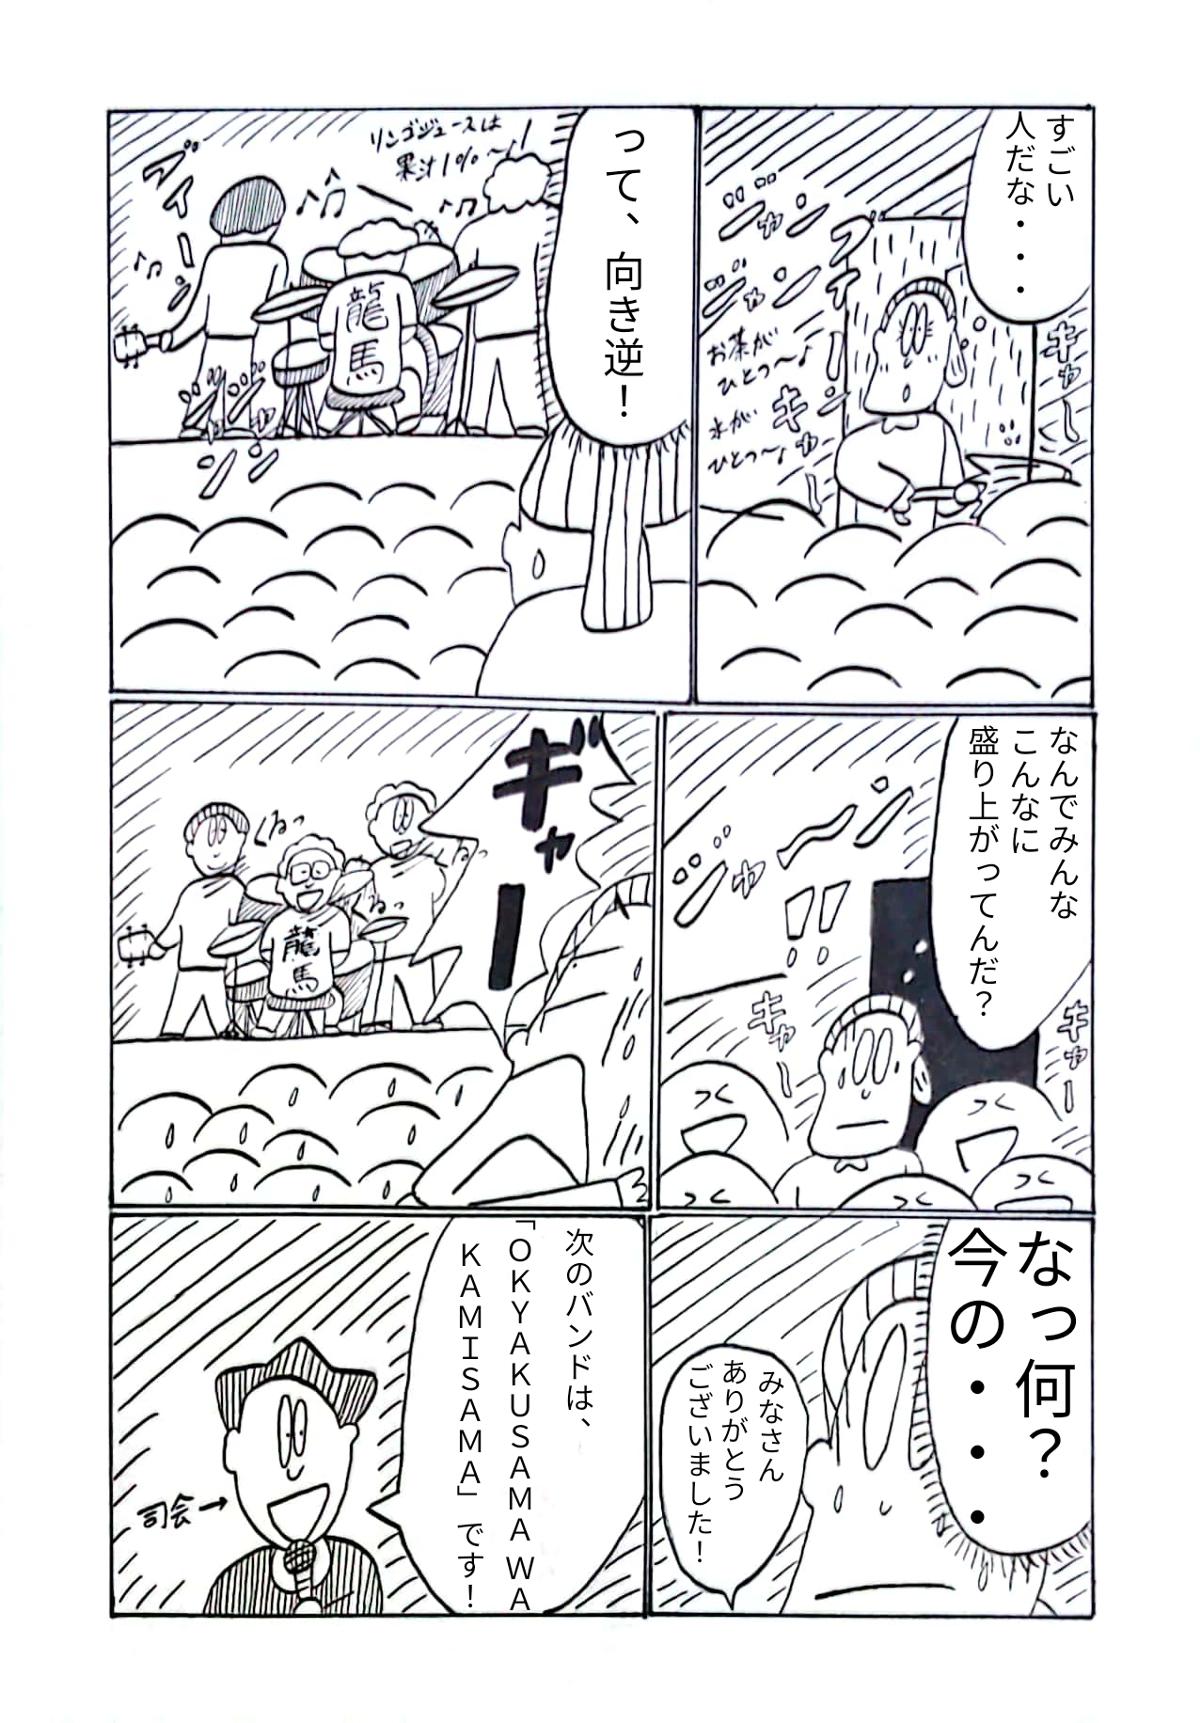 すごい
人だな・・・
ジャンジャン
ブイーン
キャー
お茶が
ひとつ〜♪
水が
ひとつ〜♪
キャー
って、向き逆！
リンゴジュースは
果汁1%〜♪
ブイーン
ジャンジャン
龍馬
なんでみんな
こんなに
盛り上がってんだ？
ジャ〜ン!!
キャー
キャー
ギャー
くねっ
くねっ
くねっ
龍馬
なっ何？
今の・・・
みなさん
ありがとう
ございました！
次のバンドは、
「OKYAKUSAMA WA
KAMISAMA」です！
司会→